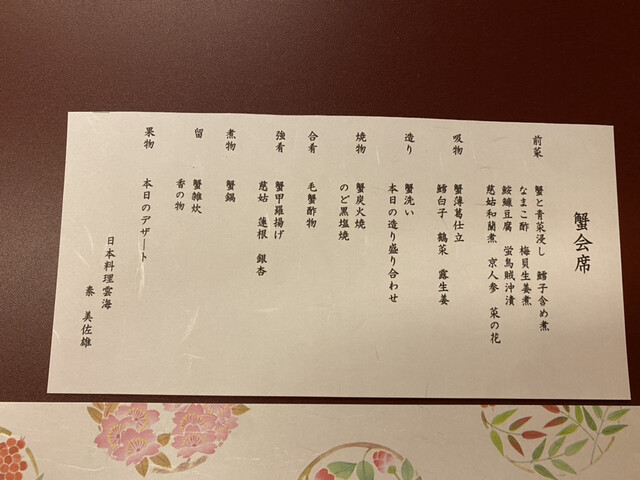 蟹会席
前菜
蟹と青菜浸し 鱈子含め煮
なまこ酢 梅貝生姜煮
鮟鱇豆腐 蛍烏賊沖漬
慈姑和蘭煮 京人参 菜の花
吸物
蟹薄葛仕立
鱈白子 鶴菜 露生姜
造り
蟹洗い
本日の造り盛り合わせ
焼物
蟹炭火焼
のど黒塩焼
合肴
毛蟹酢物
強肴
蟹甲羅揚げ
慈姑 蓮根 銀杏
煮物
蟹鍋
留
蟹雑炊
香の物
果物
本日のデザート
日本料理雲海
秦 美佐雄